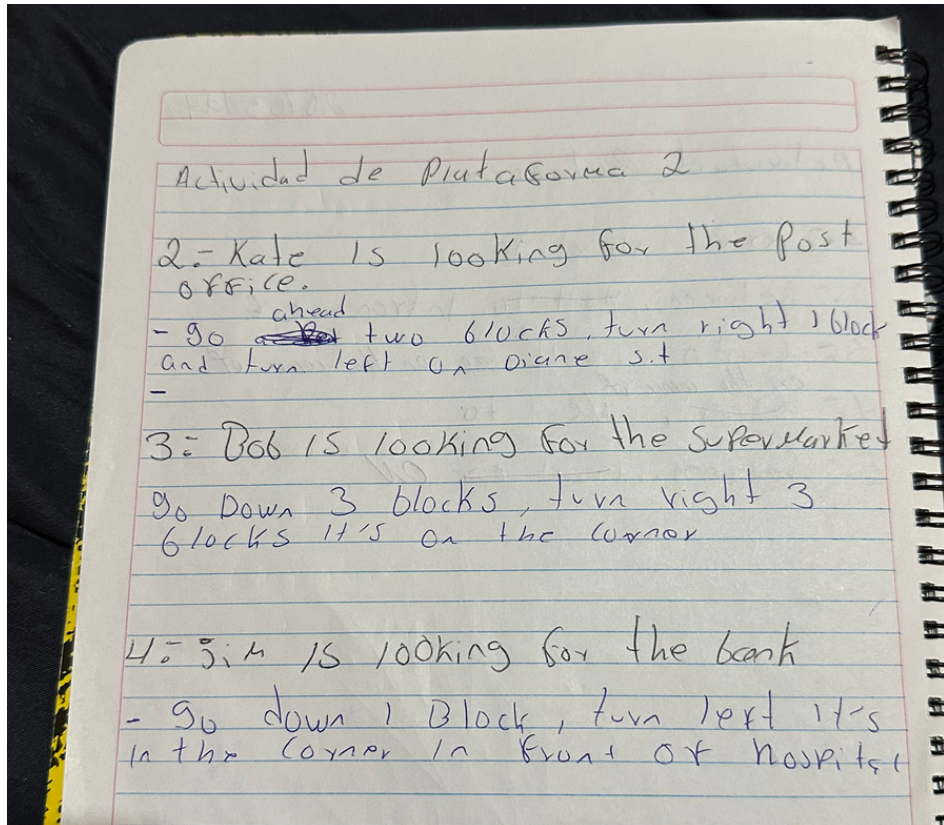 Actividad de Plataforma 2
2.- Kate is looking for the Post
office.
ahead
- go two blocks, turn right 1 block
and turn left on Diane s.t
-
3.- Bob is looking for the supermarket
go Down 3 blocks, turn right 3
blocks it's on the cornor
4.- Jim is looking for the bank
- go down 1 Block, turn left it's
in the corner in front of hospital